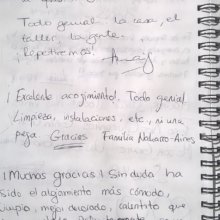 Todo genial. la casa, el
taller, la gente.
¡Repetiremos!
¡Excelente acogimiento! Todo genial
limpieza, instalaciones, etc, ni una
pega Gracias Familia Navarro-Aires
¡Muchas gracias! Sin duda ha
sido el alojamiento más cómodo,
limpio, mejor decorado, calentito que